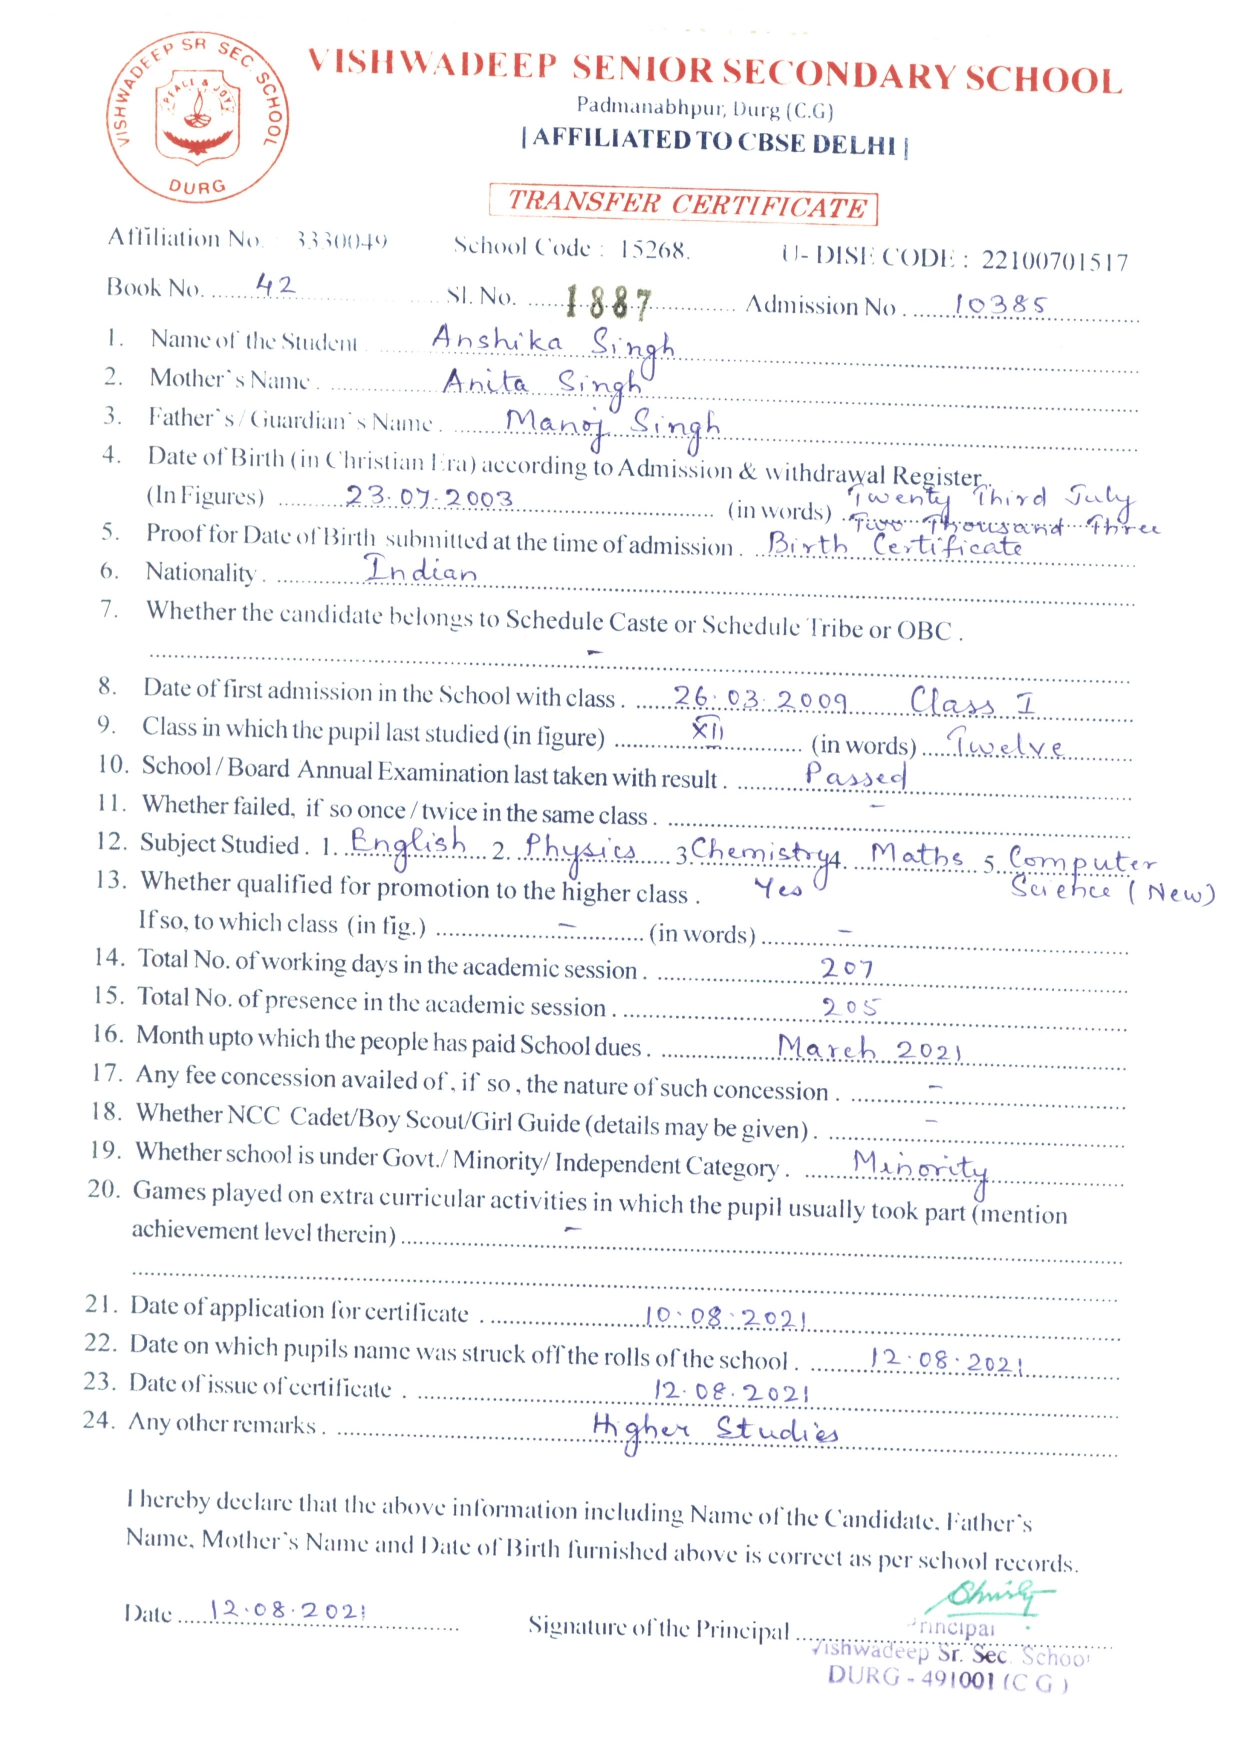 VISHWADEEP SR SEC. SCHOOL
PEACE & JOY
DURG
VISHWADEEP SENIOR SECONDARY SCHOOL
Padmanabhpur, Durg (C.G)
| AFFILIATED TO CBSE DELHI |
TRANSFER CERTIFICATE
Affiliation No. 3330049 School Code : 15268. U- DISE CODE : 22100701517
Book No. 42 Sl. No. 1887 Admission No. 10385
1. Name of the Student Anshika Singh
2. Mother`s Name. Anita Singh
3. Father`s/Guardian`s Name. Manoj Singh
4. Date of Birth (in Christian Era) according to Admission & withdrawal Register.
(In Figures) 23.07.2003 (in words) Twenty Third July
Two Thousand Three
5. Proof for Date of Birth submitted at the time of admission. Birth Certificate
6. Nationality. Indian
7. Whether the candidate belongs to Schedule Caste or Schedule Tribe or OBC .
–
8. Date of first admission in the School with class. 26.03.2009 Class I
9. Class in which the pupil last studied (in figure) XII (in words) Twelve
10. School / Board Annual Examination last taken with result. Passed
11. Whether failed, if so once / twice in the same class. –
12. Subject Studied. 1. English 2. Physics 3 Chemistry 4. Maths 5. Computer
Science (New)
13. Whether qualified for promotion to the higher class . Yes
If so, to which class (in fig.) – (in words) –
14. Total No. of working days in the academic session. 207
15. Total No. of presence in the academic session. 205
16. Month upto which the people has paid School dues. March 2021
17. Any fee concession availed of, if so, the nature of such concession . –
18. Whether NCC Cadet/Boy Scout/Girl Guide (details may be given). –
19. Whether school is under Govt./ Minority/ Independent Category. Minority
20. Games played on extra curricular activities in which the pupil usually took part (mention
achievement level therein) –
21. Date of application for certificate . 10.08.2021
22. Date on which pupils name was struck off the rolls of the school . 12.08.2021
23. Date of issue of certificate . 12.08.2021
24. Any other remarks. Higher Studies
I hereby declare that the above information including Name of the Candidate, Father`s
Name, Mother`s Name and Date of Birth furnished above is correct as per school records.
Date 12.08.2021 Signature of the Principal
Principal
Vishwadeep Sr. Sec. School
DURG - 491001 (C G )